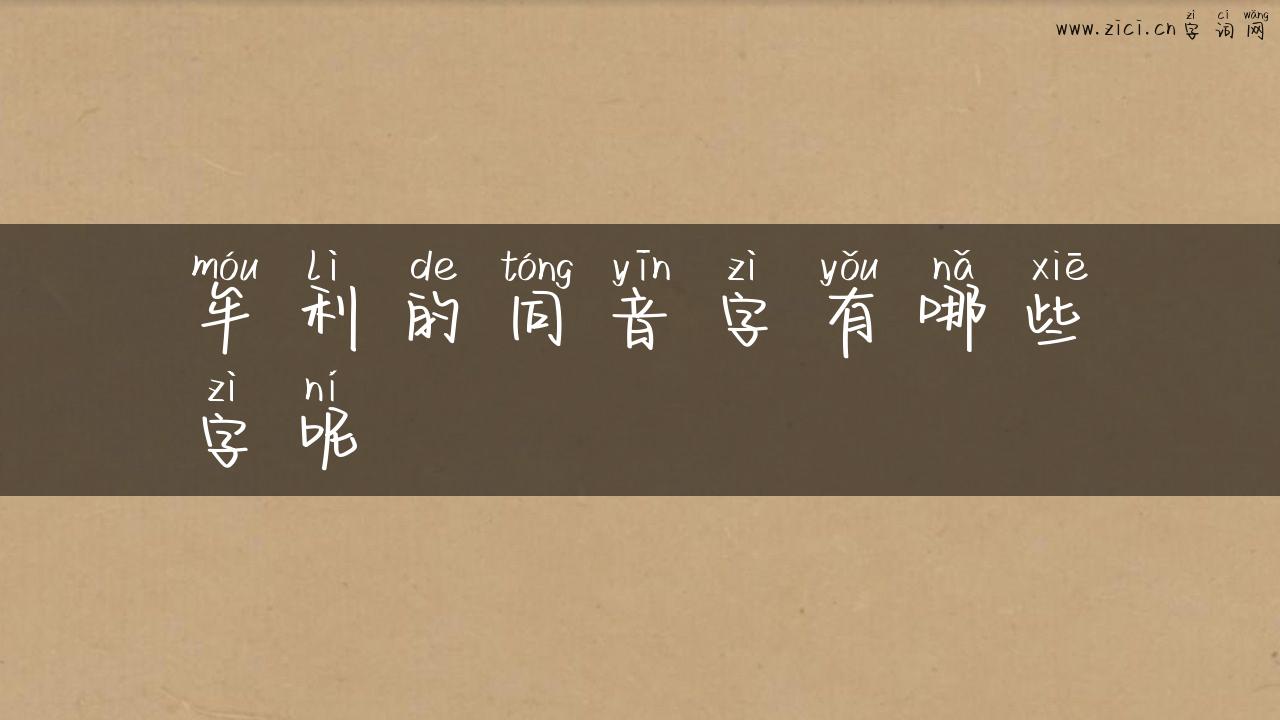 zì cí wǎng
www.zici.cn 字词网
móu lì de tóng yīn zì yǒu nǎ xiē
牟利的同音字有哪些
zì ní
字呢